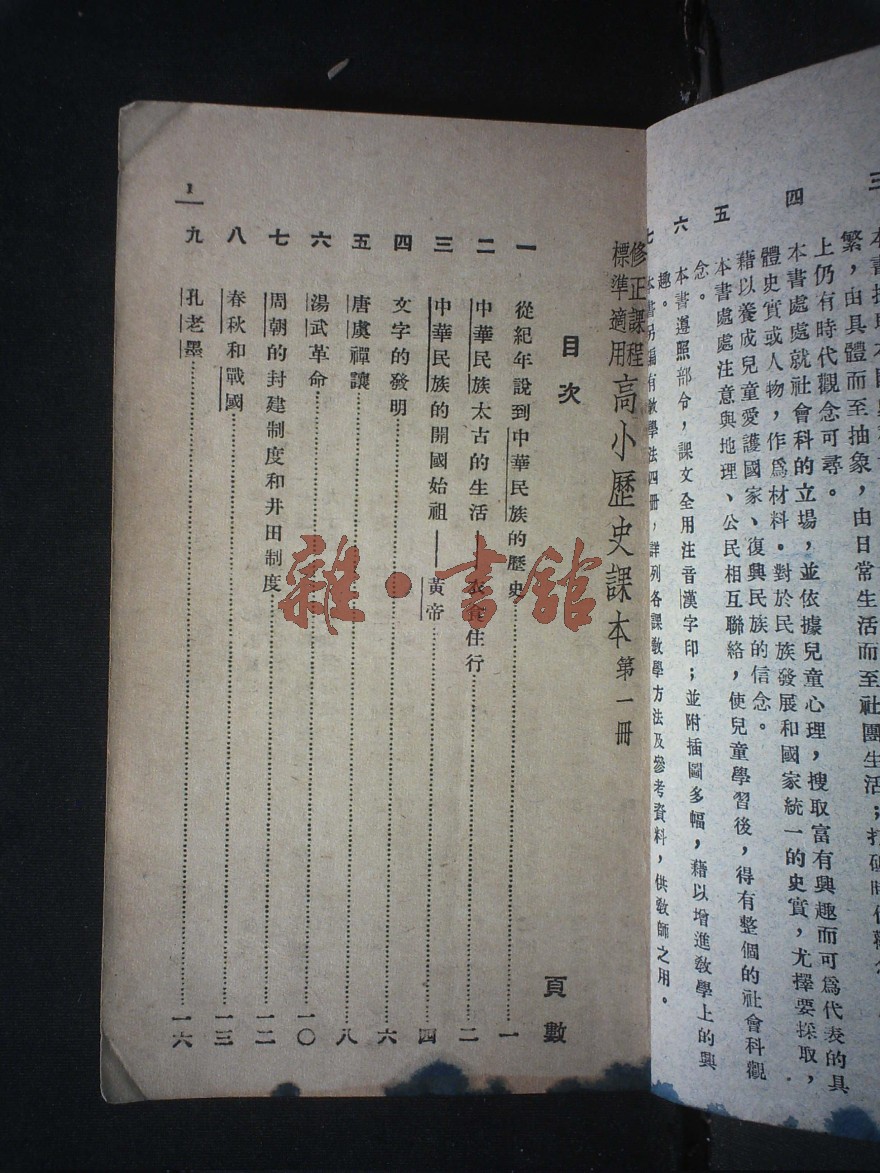 繁，由具體而至抽象，由日常生活而至社團生活；打破時代
上仍有時代觀念可尋。
四 本書處處就社會科的立場，並依據兒童心理，搜取富有興趣而可爲代表的具
體史實或人物，作爲材料。對於民族發展和國家統一的史實，尤擇要採取，
藉以養成兒童愛護國家、復興民族的信念。
五 本書處處注意與地理、公民相互聯絡，使兒童學習後，得有整個的社會科觀
念。
六 本書遵照部分，課文全用注音漢字印；並附插圖多幅，藉以增進敎學上的興
趣。
七 本書另編有敎學法四册，詳列各課敎學方法及參考資料，供敎師之用。
修正課程
標準適用
高小歷史課本 第一冊
目次
頁數
一 從紀年說到中華民族的歷史 一
二 中華民族太古的生活——衣食住行 二
三 中華民族的開國始祖——黃帝 四
四 文字的發明 六
五 唐虞禪讓 八
六 湯武革命 一〇
七 周朝的封建制度和井田制度 一二
八 春秋和戰國 一三
九 孔老墨 一六
1
雜·書館